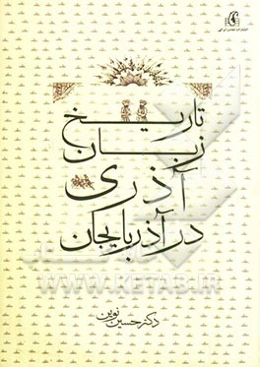 تاریخ
زبان
آذری
در آذربایجان
دکتر حسین نوین
WWW.KETAB.IR